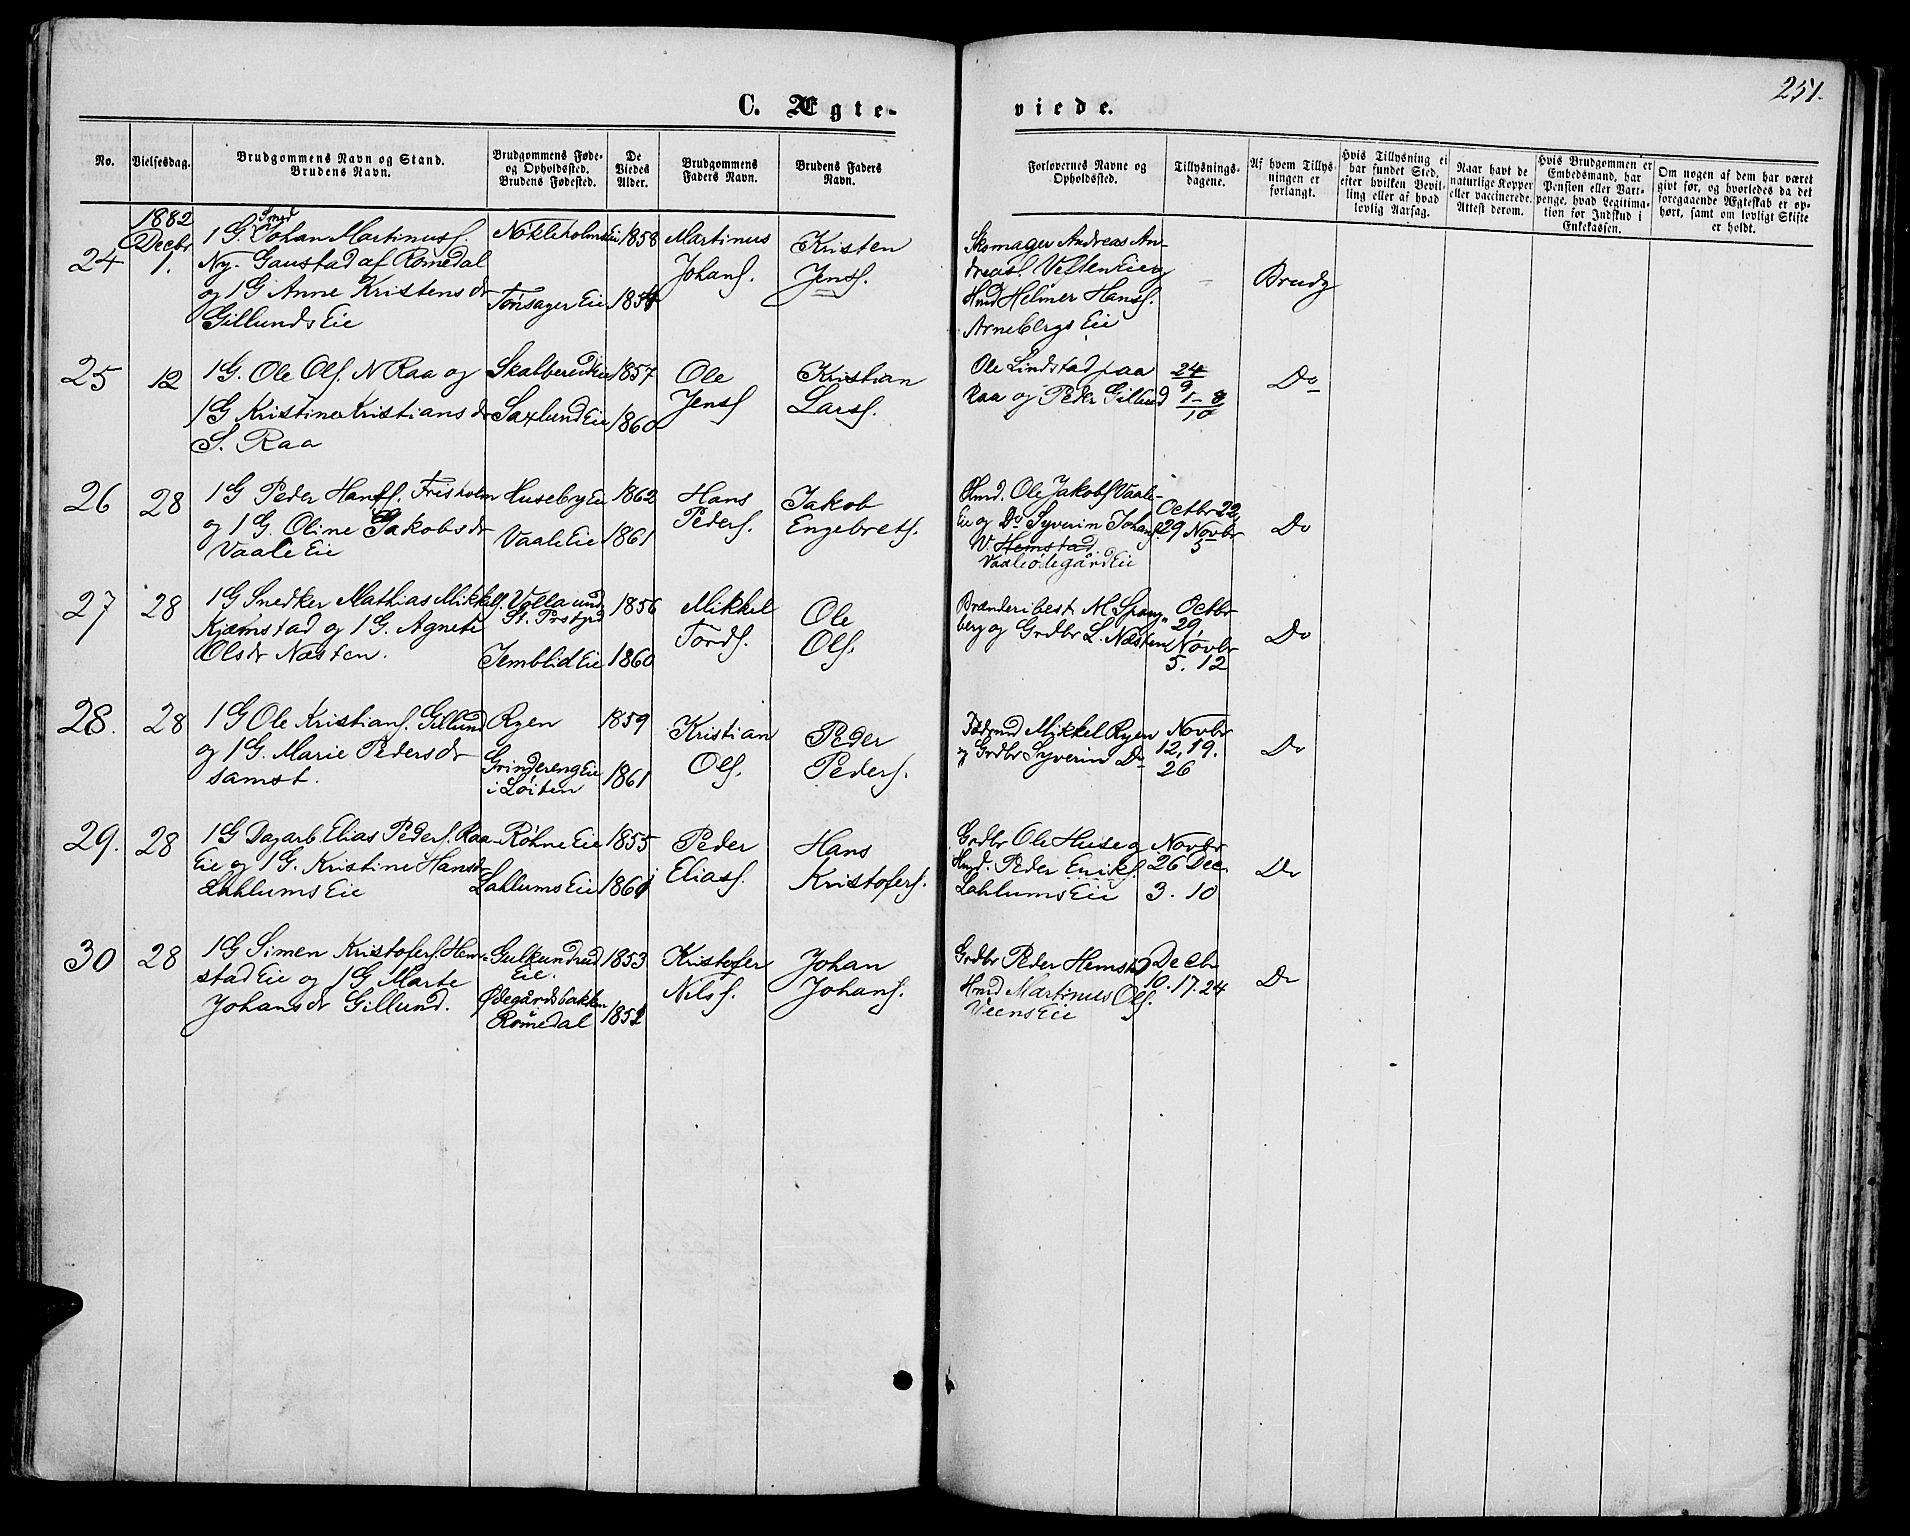 251.
C. Ægte-
viede.
No.
Vielsesdag.
Brudgommens Navn og Stand.
Brudens Navn.
Brudgommens Føde-
og Opholdssted.
Brudens Fødested.
De
Viedes
Alder.
Brudgommens
Faders Navn.
Brudens Faders
Navn.
Forlovernes Navne og
Opholdssted.
Tillysnings-
dagene.
Af hvem Tillys-
ningen er
forlangt.
Hvis Tillysning ei
har fundet Sted,
efter hvilken Bevil-
ling eller af hvad
lovlig Aarsag.
Naar havt de
naturlige Kopper
eller vaccinerede.
Attest derom.
Hvis Brudgommen er
Embedsmand, har
Pension eller Vart-
penge, hvad Legitima-
tion for Indskud i
Enkekassen.
Om nogen af dem har været
givt før, og hvorledes da det
foregaaende Ægteskab er op-
hørt, samt om lovligt Skifte
er holdt.
24
1882
Decbr
1.
Smed
1 G. Johan Martinus.
Ny- Gaustad af Romedal
og 1 G Anne Kristensdr
Gillunds Eie
Nökleholms Ei
Tønsager Eie
1858
1854
Martinus
Johans.
Kristen
Jens.
Skomager Andreas An-
dreas. Velten Eie og
Hmd Helmer Hans.
Arnebergs Eie
-
Brudg
25
12
1 G. Ole Ols. N Raa og
1 G Kristine Kristiansdr
S. Raa
Skalbereid Eie
Saxlund Eie
1857
1860
Ole
Jens
Kristian
Lars.
Ole Lindstad paa
Raa og Peder Gillund
24
9
1-8
10
Do
26
28
1 G Peder Hans. Frisholm
og 1 G. Oline Jakobsdr
Vaale Eie
Huseby Eie
Vaale Eie
1862
1861
Hans
Peders.
Jakob
Engebrets.
Hmd. Ole Jakobs Vaale-
Eie og Do Syverin Johans
V. Hemstad
Vaaleødegård Eie
Octbr 22,
29 Novbr
5
Do
27
28
1 G Snedker Mathias Mikkels.
Kjæmstad og 1 G. Agnete
Olsdr Næsten.
Volla und
St. Prstgrd
Jemblid Eie
1856
1860
Mikkel
Tords.
Ole
Ols.
Brænderibest M Spang-
berg og Grdbr L. Næsten
Octbr
29,
Novbr
5. 12
Do
28.
28
1 G Ole Kristians. Gillund
og 1 G. Marie Pedersdr
samst.
Ryen
Grindereng Eie
i Løiten
1859
1861
Kristian
Ols.
Peder
Peders.
Mikkel Ryen
og Grdbr Syverin Do
Novbr
12, 19.
26
Do
29.
28
1 G Dagarb. Elias Peders. Raa-
Eie og 1 G. Kristine Hansdr
Lahlums Eie
Røhne Eie
Lahlums Eie
1855
1861
Peder
Elias.
Hans
Kristofers.
Grdbr Ole Huse og
Hmd. Peder Eriks.
Lahlums Eie
Novbr
26 Dec.
3. 10
Do
30
28
1 G Simen Kristofers. Hem-
stad Eie og 1 G Marte
Johansdr Gillund.
Gulkundrud
Eie.
Ødegårdsbakken
Romedal
1853
1852
Kristofer
Nils.
Johan
Johans.
Grdbr Peder Hemstad
Hmd Martinus Ols.
Viens Eie
Decbr
10. 17. 24
Do